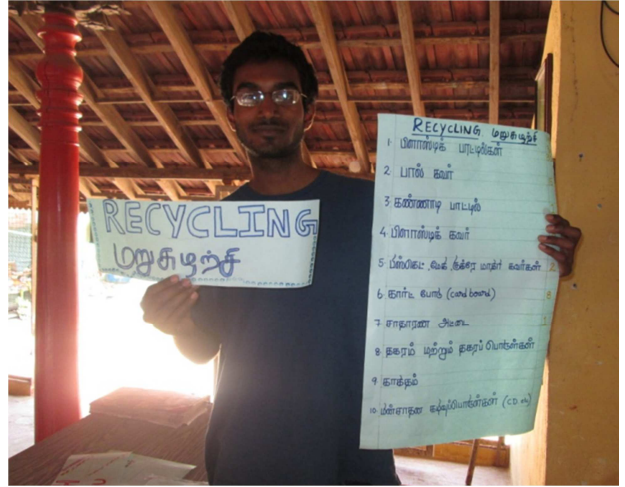 RECYCLING
மறுசுழற்சி
RECYCLING மறுசுழற்சி
1 பிளாஸ்டிக் பாட்டில்கள்
2 பால் கவர்
3 கண்ணாடி பாட்டில்
4 பிளாஸ்டிக் கவர்
5 பிஸ்கெட், கவர்கள்
6 கார்ட் போர்டு (card board)
7 சாதாரண அட்டை
8 தகரம் மற்றும் தகரப் பொருள்கள்
9 காகிதம்
10 மின்சாதன (CD